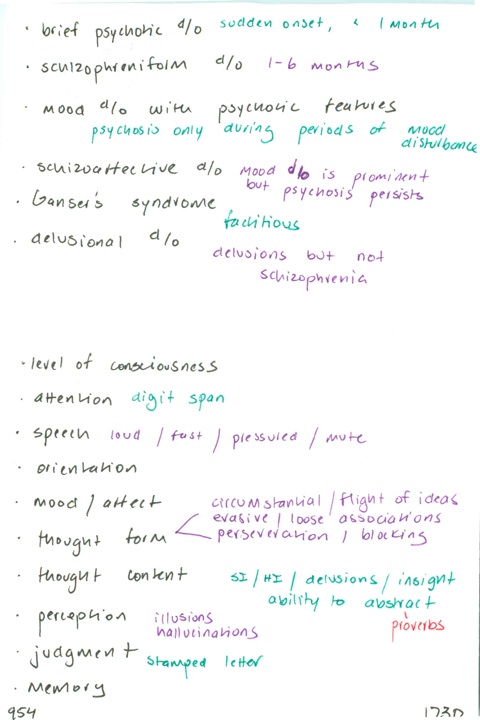 · brief psychotic d/o sudden onset, < 1 month
· schizophreniform d/o 1-6 months
· mood d/o with psychotic features
psychosis only during periods of mood
disturbance
· schizoaffective d/o mood d/o is prominent
but psychosis persists
· Ganser's syndrome
factitious
· delusional d/o
delusions but not
schizophrenia
· level of consciousness
· attention digit span
· speech loud / fast / pressured / mute
· orientation
· mood / affect
circumstantial / flight of ideas
evasive / loose associations
· thought form perseveration / blocking
· thought content SI / HI / delusions / insight
ability to abstract
proverbs
· perception illusions
hallucinations
· judgment stamped letter
· memory
954